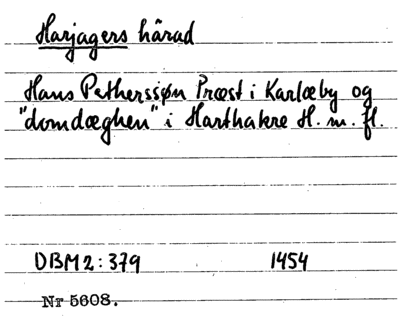 Harjagers härad
Hans Petherssøn Præst i Karlæby og
"domdæghen" i Harthakre H. m. fl.
DBM2:379 1454
Nr 5608.